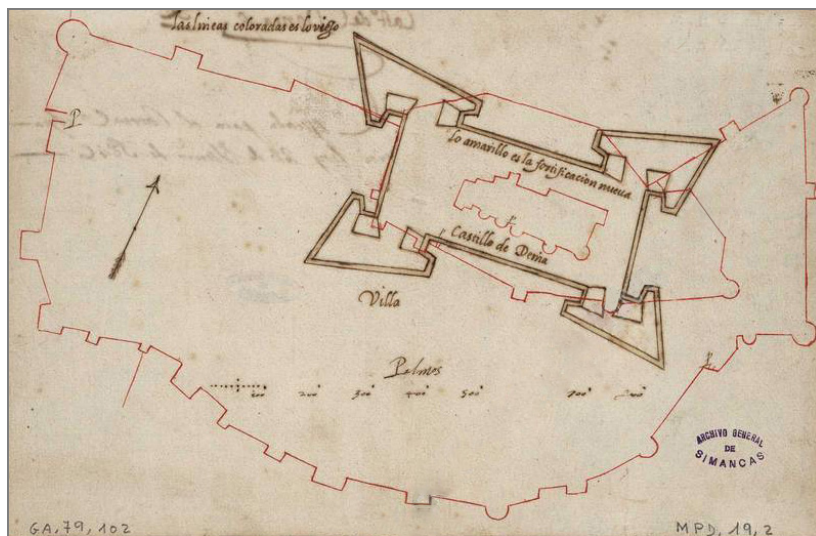 las lineas coloradas es lo viejo
P
Lo amarillo es la fortificacion nueva
Castillo de Denia
Villa
Palmos
100
200
300
400
500
700
P
ARCHIVO GENERAL
DE
SIMANCAS
GA, 79, 102
MPD, 19, 2